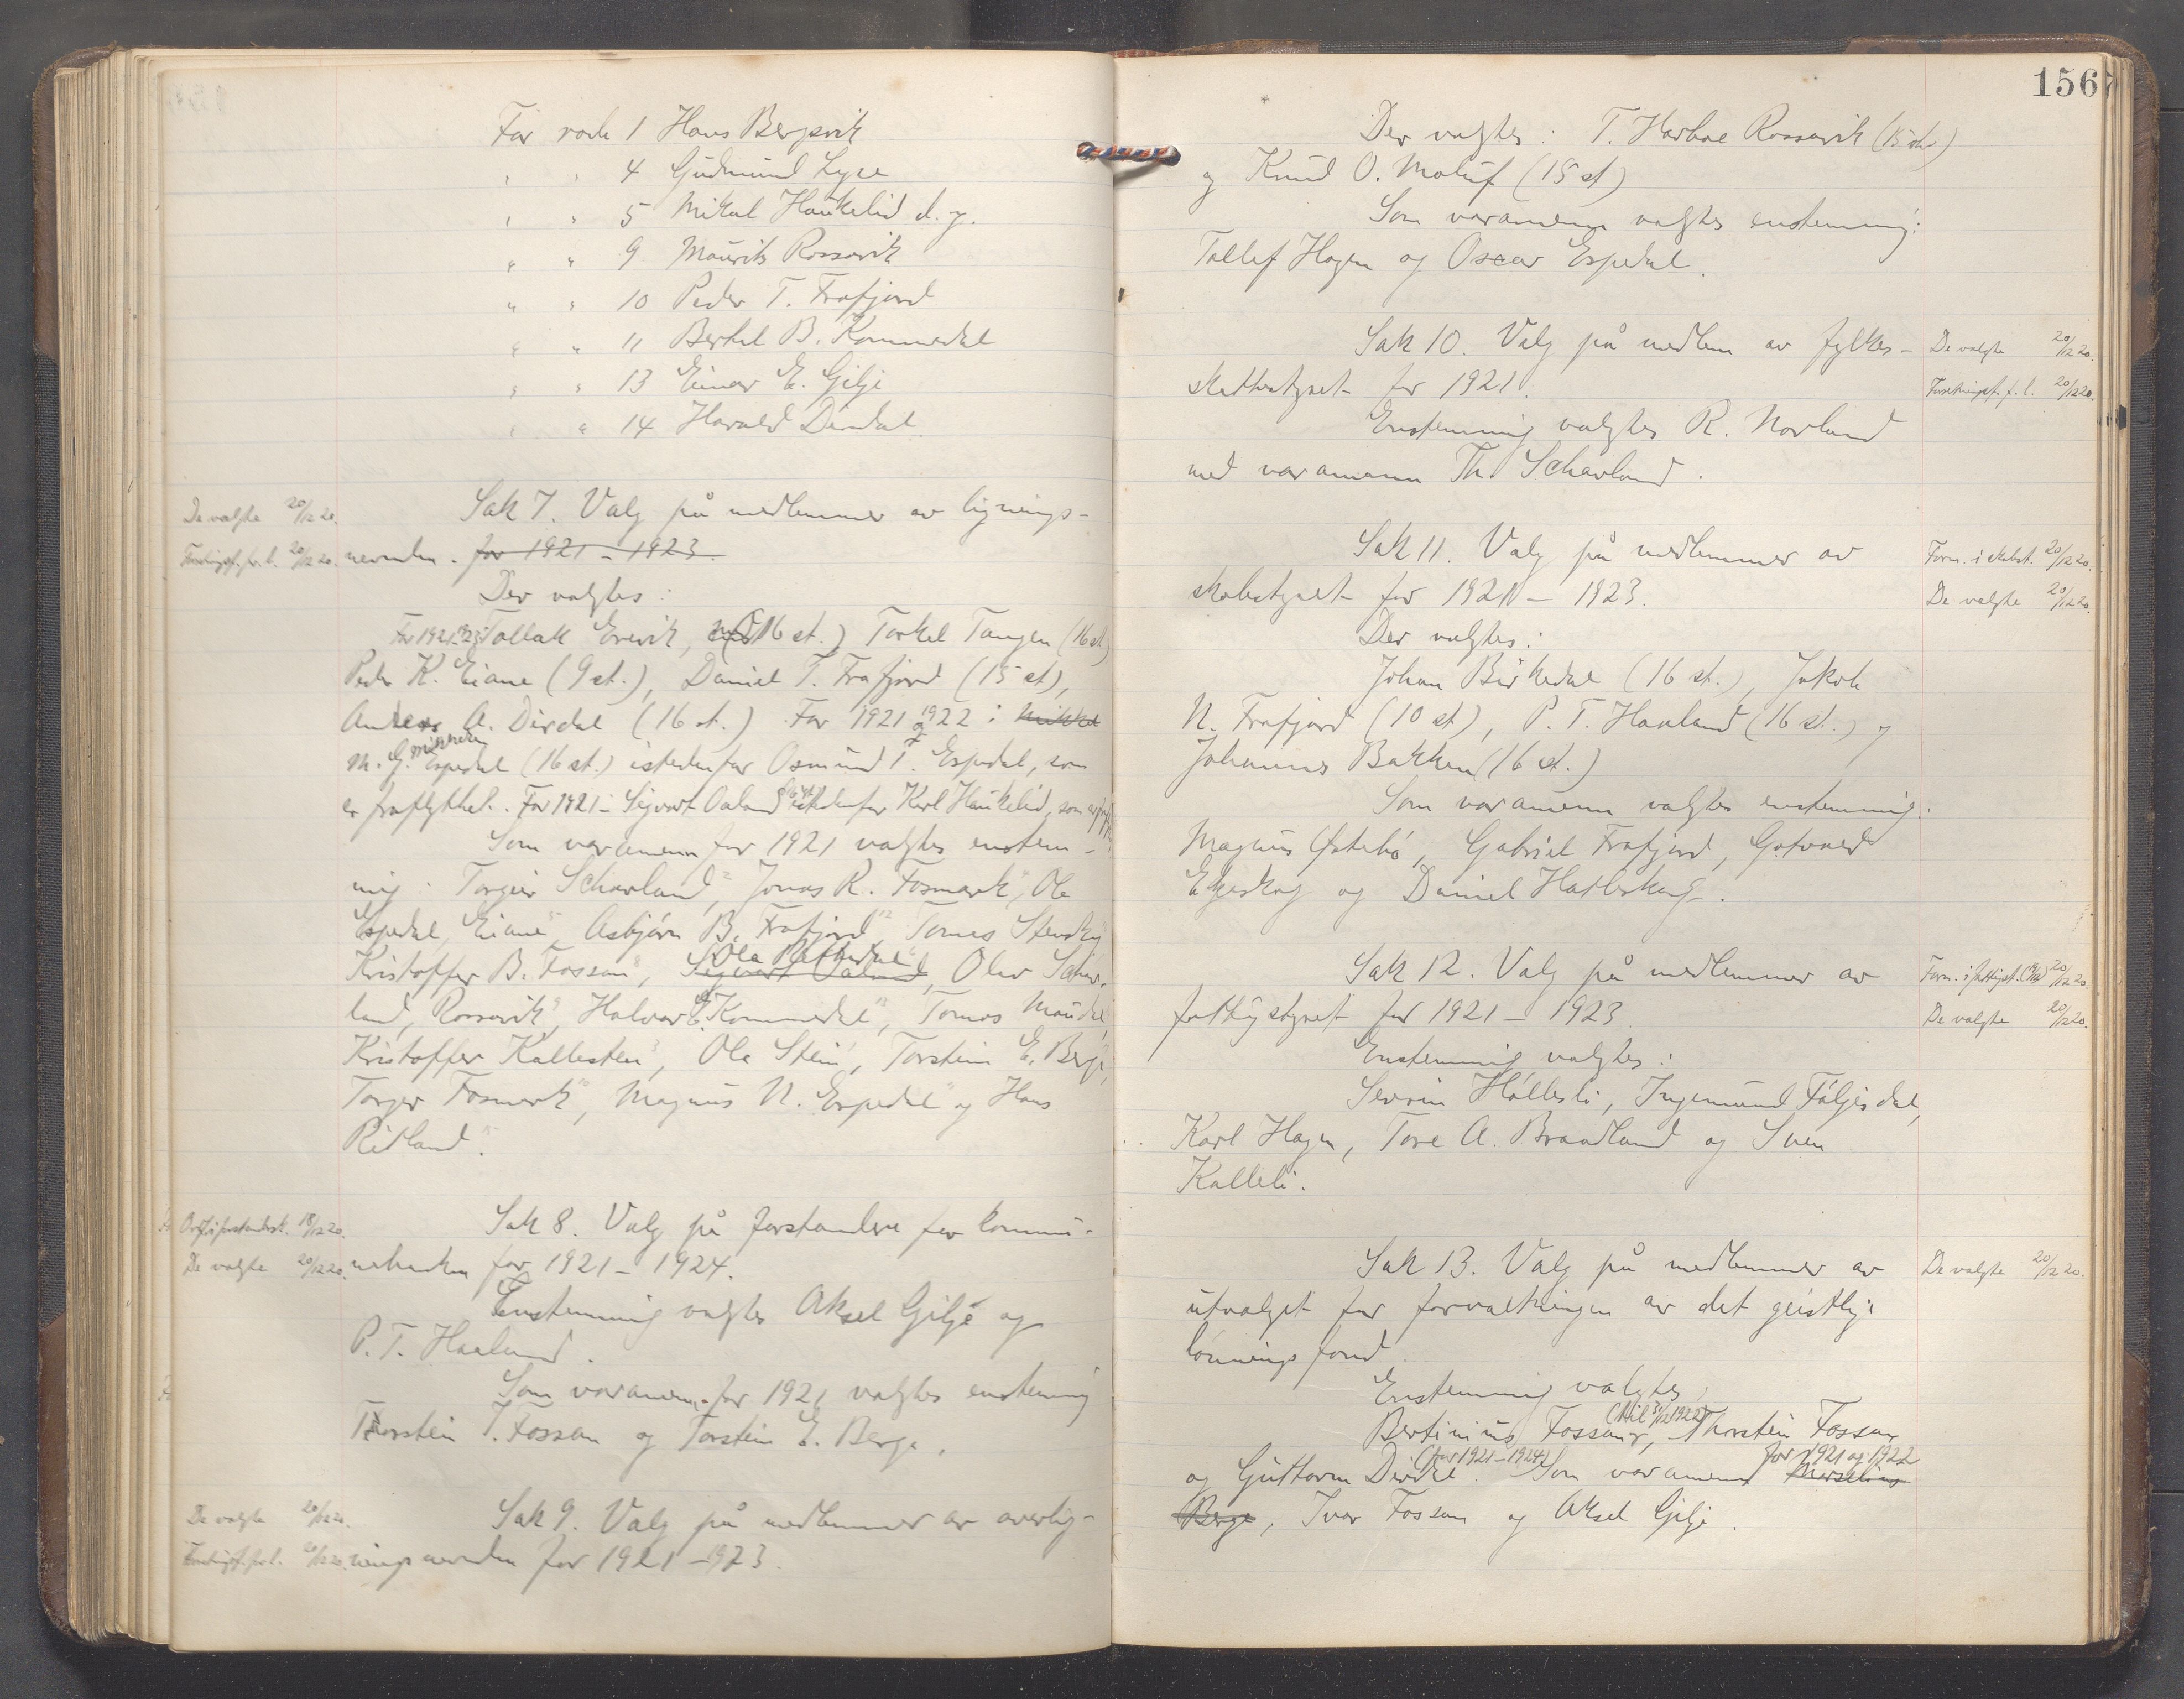 For rode 1 Hans Bergsvik
" " 4 Gudmund Lyse
" " 5 Mikal Haukelid d. y.
" " 9 Maurits Rossavik
" " 10 Peder T. Frafjord
" " 11 Bertel B. Kommedal
" " 13 Einar E. Gilje
" " 14 Harald Dirdal
De valgte 20/12 20.
Sak 7. Valg på medlemmer av lignings-
20/12 20.
nevnden. for 1921 - 1923.
Der valgtes:
For 1921-23: Tollak Erevik, (16 st.) Torkel Tangen (16 st)
Peder K. Eiane (9 st.), Daniel T. Frafjord (15 st),
Anders A. Dirdal (16 st.) For 1921 og 1922: Mikkel
M. G. Espedal (16 st.) istedenfor Osmund T. Espedal, som
er fraflyttet. For 1921 - Sigvart Oaland istedenfor Karl Haukelid, som
Som varamenn for 1921 valgtes enstem-
mig: Torgeir Scharland, Jonas R. Fosmark, Ole
Espedal, Eiane, Asbjørn B. Frafjord, Tomas
Kristoffer B. Fossan, Sigvart Oaland, Olav Schar-
Ola
land, Rossavik, Halvard E. Kommedal, Tomas Maudal
Kristoffer Kallesten, Ole Stein, Torstein E. Berge,
Torger Fosmark, Magnus N. Espedal og Hans
Ritland.
18/12 20.
Sak 8. Valg på forstandere for kommu-
De valgte 20/12 20.
nebanken for 1921 - 1924.
Enstemmig valgtes Aksel Gilje og
P. T. Haaland.
Som varamenn for 1921 valgtes enstemmig
Thorstein T. Fossan og Torstein E. Berge.
De valgte 20/12 20.
Sak 9. Valg på medlemmer av overlig-
20/12 20.
ningsnevnden for 1921 - 1923.
156
Der valgtes: T. Harboe Rossavik (15 st.)
og Knud O. Maluf (15 st)
Som varamenn valgtes enstemmig:
Tollef Hagen og Oscar Espedal.
Sak 10. Valg på medlem av fylkes-
De valgte 20/12 20.
skattestyret for 1921.
20/12 20.
Enstemmig valgtes R. Norland
med varamann Th. Scharland.
Sak 11. Valg på medlemmer av
Form. i skolest. 20/12 20.
skolestyret for 1921 - 1923.
De valgte 20/12 20.
Der valgtes:
Johan Birkedal (16 st.), Jakob
N. Frafjord (10 st), P. T. Haaland (16 st.) og
Johannes Bakken (16 st.)
Som varamenn valgtes enstemmig:
Magnus Østebø, Gabriel Frafjord, Gotvard
Ekeskog og Daniel Hatleskog.
Sak 12. Valg på medlemmer av
Form. i fattigst. 20/12 20.
fattigstyret for 1921 - 1923
De valgte 20/12 20.
Enstemmig valgtes:
Severin Høllesli, Ingemund Føljesdal,
Karl Hagen, Tore A. Braadland og Sven
Kalleli.
Sak 13. Valg på medlemmer av
De valgte 20/12 20.
utvalget for forvaltningen av det geistlige
lønningsfond.
Enstemmig valgtes:
(til 31/12 1922)
Bertinius Fossan, Thorstein Fossan
(for 1921 - 1924) for 1921 og 1922
og Guttorm Dirdal. Som varamenn Marselius
Berge, Ivar Fossan og Aksel Gilje.